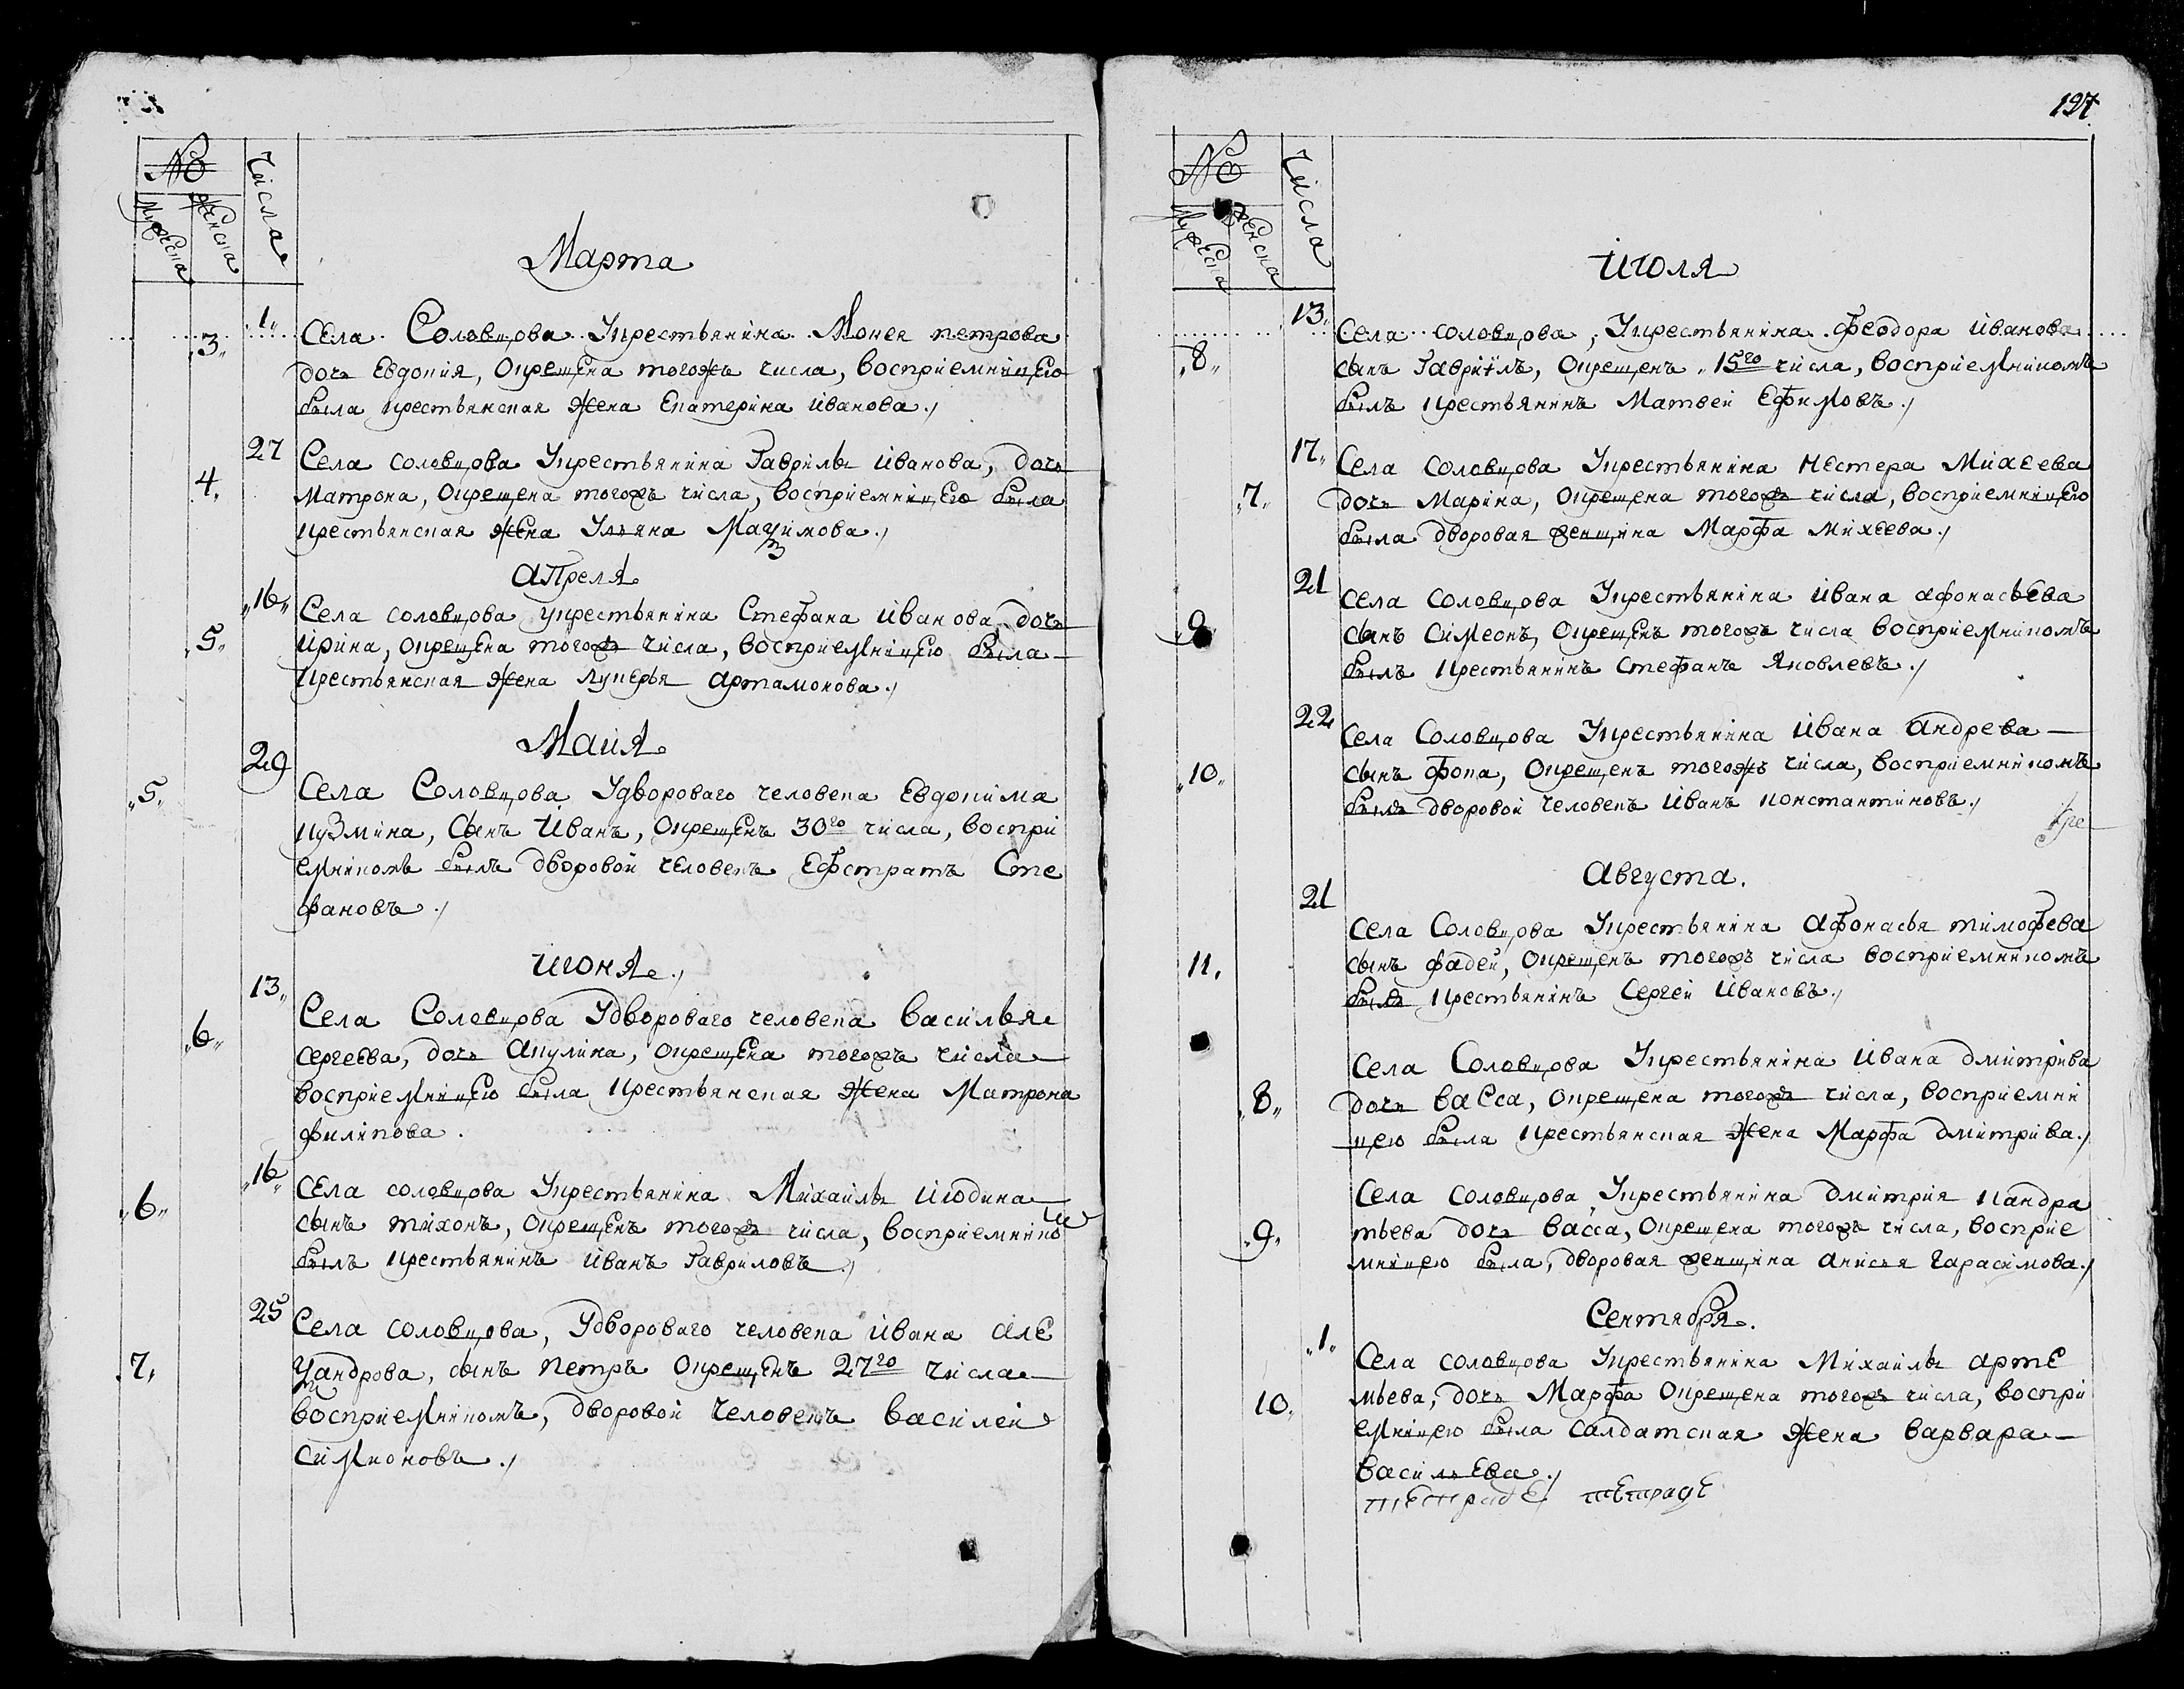 №
Мужеска
женска
числа
Марта
1.
3.
Села Соловцова Укрестьянина Мокея петрова
дочь Евдокия, Окрещена тогожъ числа, восприемницею
была крестьянская жена Екатерина иванова./
27
4.
Села соловцова Укрестьянина Гаврилы иванова, дочь
Матрона, Окрещена тогожъ числа, восприемницею была
крестьянская жена Ульяна Маѯимова./
Апреля
16
5.
Села соловцова укрестьянина Стефана иванова дочь
ирина, окрещена тогожъ числа, восприемницею была
крестьянская жена лукерья артамонова./
Маия
29
5.
Села Соловцова Удвороваго человека Евдокима
кузмина, Сынъ Иванъ, Окрещенъ 30го числа, воспри
емникомъ былъ дворовой человекъ Ефстратъ Сте
фановъ./
июня./
13.
6.
Села Соловцова Удвороваго человека василья
сергеева, дочь акулина, окрещена тогожъ числа
восприемницею была крестьянская жена Матрона
филипова.
16.
6.
Села соловцова Укрестьянина Михаилы июдина
сынъ тихонъ, Окрещенъ тогожъ числа, восприемнико
былъ крестьянинъ иванъ Гавриловъ./
25
7.
Села соловцова, Удвороваго человека ивана але
ѯандрова, сынъ петръ окрещенъ 27го числа
восприемникомъ, дворовой человекъ василеи
симионовъ./
127
№
Мужеска
женска
числа
июля
13.
8.
Села соловцова, Укрестьянина феодора иванова
сынъ Гаврiилъ, Окрещенъ 15го числа, восприемникомъ
былъ крестьянинъ Матвеи Ефимовъ./
17.
7.
Села соловцова Укрестьянина нестера Михеева
дочь Марина, Окрещена тогожъ числа, восприемницею
была дворовая женщина Марфа михеева./
21
9.
Села Соловцова Укрестьянина ивана афонасьева
сынъ симеонъ, Окрещенъ тогожъ числа восприемникомъ
былъ крестьянинъ стефанъ яковлевъ./
22
10.
Села Соловцова Укрестьянина ивана андрева
сынъ фока, Окрещенъ тогожъ числа, восприемникомъ
былъ дворовой человекъ иванъ константиновъ./
Августа.
21
11.
Села Соловцова Укрестьянина афонасья тимофева
сынъ фадеи, Окрещенъ тогожъ числа восприемникомъ
былъ крестьянинъ Сергеи ивановъ./
8.
Села Соловцова Укрестьянина ивана дмитрива
дочь васса, Окрещена тогожъ числа, восприемни
цею была крестьянская жена Марфа дмитрива./
9.
Села соловцова Укрестьянина дмитрия кандра
тьева дочь васса, Окрещена тогожъ числа, восприе
мницею была, дворовая женщина анисья гарасимова./
Сентября.
1.
10.
Села соловцова Укрестьянина Михаилы арте
мьева, дочь Марфа Окрещена тогожъ числа, воспри
емницею была Салдатская жена варвара
васильева./
тетраде тетраде